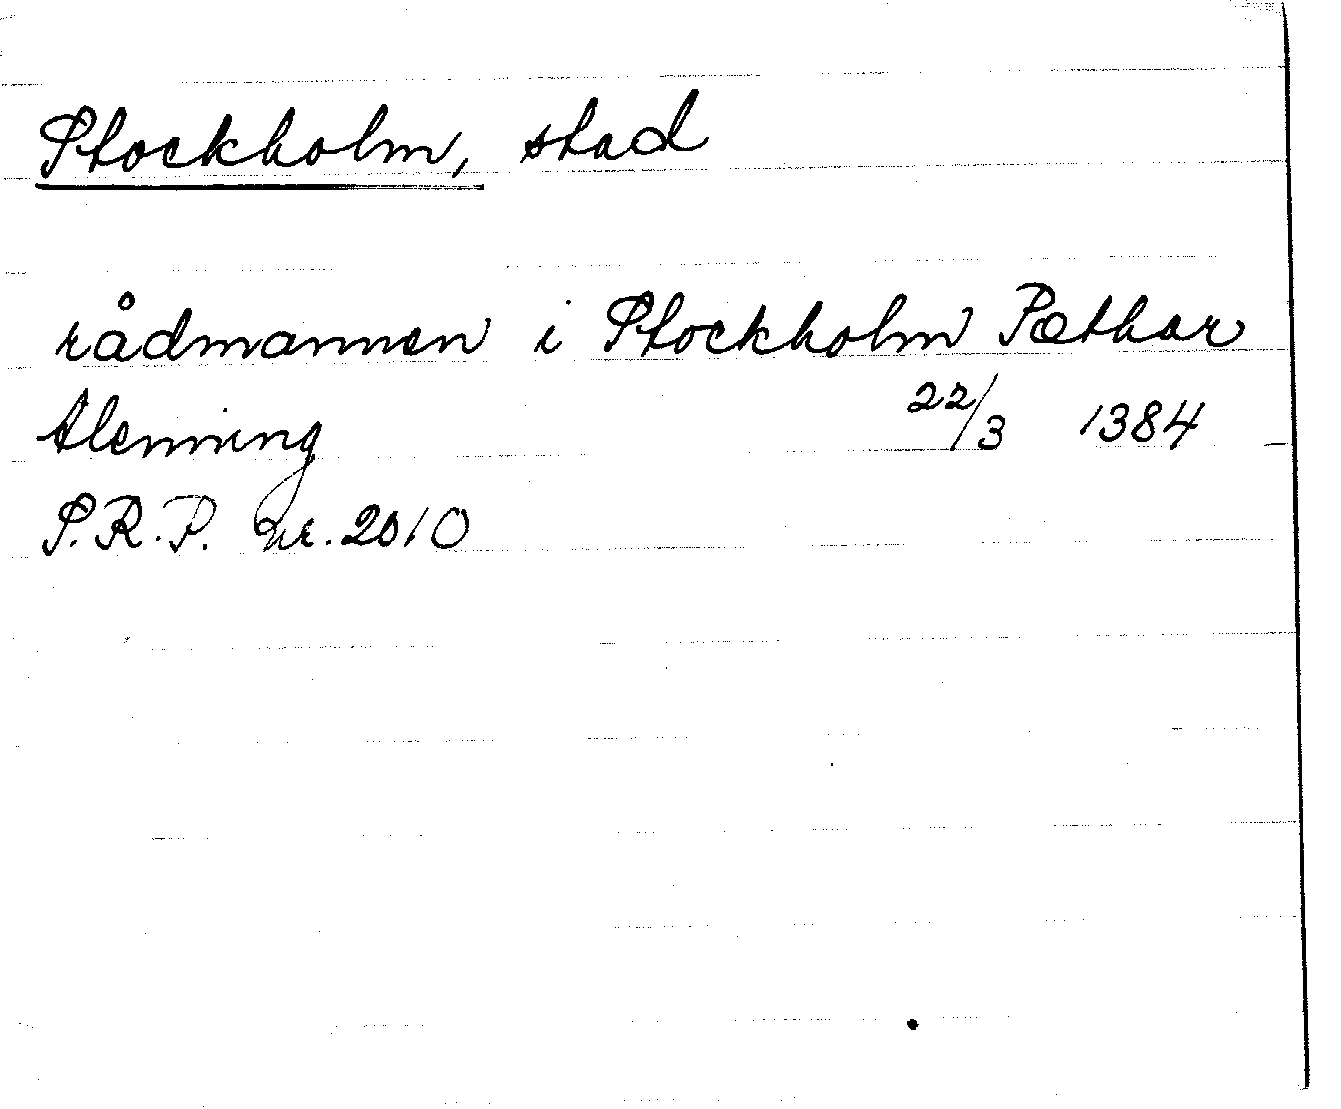 Stockholm, stad
rådmannen i Stockholm Pæthar
Ålenning 22/3 1384
S.R.P. nr. 2010